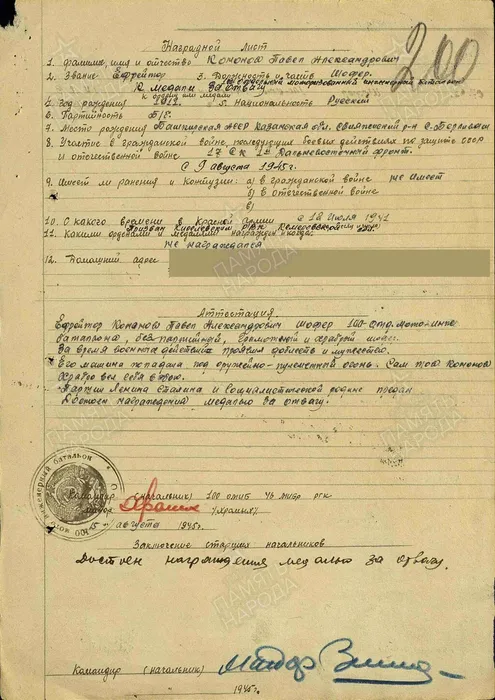 200
Наградной лист
1. Фамилия, имя и отчество Кононов Павел Александрович
2. Звание Ефрейтор 3. Должность и часть Шофер.
100 отдельной моторизованный инженерный батальон
К медали За отвагу
к ордену или медали
4. год рождения 1912 5. Национальность Русский
6. Партийность Б/п.
7. Место рождения Башкирская АССР Казанская обл. р-н с.
8. Участие в гражданской войне, последующих боевых действиях по защите СССР
и отечественной войне 17 СК 1го Дальневосточный фронт.
с 9 августа 1945г.
9. Имеет ли ранения и контузии: а) в гражданской войне не имеет
б) в отечественной войне
в)
10. С какого времени в Красной армии с 18 июля 1941
Призван Киселевским РВК Кемеровской обл.
11. Какими орденами и медалями награжден и когда:
не награждался
12. Домашний адрес
ПАМЯТЬ НАРОДА
Аттестация
Ефрейтор Кононов Павел Александрович шофер 100 отд. мотоинж.
батальона, без партийный, грамотный и храбрый
За время военных действий проявил доблесть и мужество.
Его машина попадала под оружейно-пулеметный огонь. Сам тов Кононов
храбро вел себя в бою.
Партии Ленина Сталина и Социалистической родине предан
Достоен награждения медалью За отвагу.
инженерный батальон
Командир (начальник) 100 омиб 46 мибр ргк
майор /Храпых/
августа 1945г.
Заключение старших начальников
Достоен награждения медалью за отвагу.
Командир (начальник) Майор
1945г.